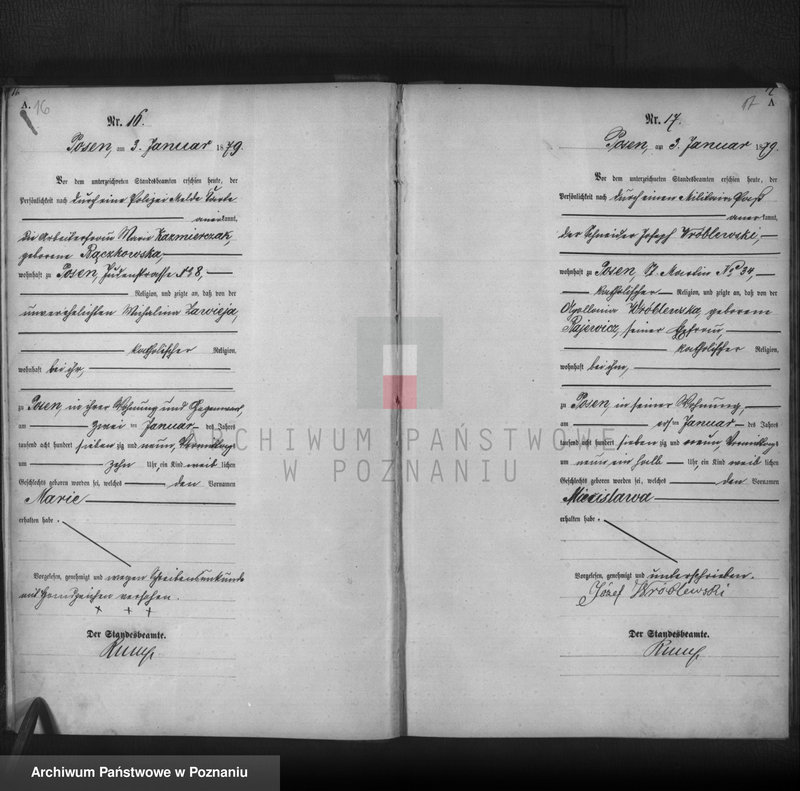 A. 16
Nr. 16.
Posen, am 3. Januar 1879.
Vor dem unterzeichneten Standesbeamten erschien heute, der
Persönlichkeit nach durch eine Polizei Melde Karte
anerkannt,
die Arbeiterfrau Marie Kazmierczak,
geborene Rączkowska,
wohnhaft zu Posen, Judenstrasse No 8,
Religion, und zeigte an, daß von der
unverehelichten Michalina Zawieja,
katholischer Religion,
wohnhaft bei ihr,
zu Posen, in ihrer Wohnung und Gegenwart,
am zwei ten Januar des Jahres
tausend acht hundert sieben zig und neun, Vormittags
um zehn Uhr, ein Kind weib lichen
Geschlechts geboren worden sei, welches den Vornamen
Marie
erhalten habe.
Vorgelesen, genehmigt und wegen Schreibensunkunde
mit Handzeichen versehen.
+ + +
Der Standesbeamte.
17 A
Nr. 17.
Posen, am 3. Januar 1879.
Vor dem unterzeichneten Standesbeamten erschien heute, der
Persönlichkeit nach durch einen Militair Paß
anerkannt,
der Schneider Joseph Wróblewski,
wohnhaft zu Posen, St. Martin No 34,
katholischer Religion, und zeigte an, daß von der
Apollonia Wróblewska, geborene
Rajewicz, seiner Ehefrau,
katholischer Religion,
wohnhaft bei ihm,
zu Posen, in seiner Wohnung,
am ers ten Januar des Jahres
tausend acht hundert sieben zig und neun, Vormittags
um neun ein halb Uhr, ein Kind weib lichen
Geschlechts geboren worden sei, welches den Vornamen
Miecislawa
erhalten habe.
Vorgelesen, genehmigt und unterschrieben.
Józef Wróblewski
Der Standesbeamte.
ARCHIWUM PAŃSTWOWE
W POZNANIU
Archiwum Państwowe w Poznaniu